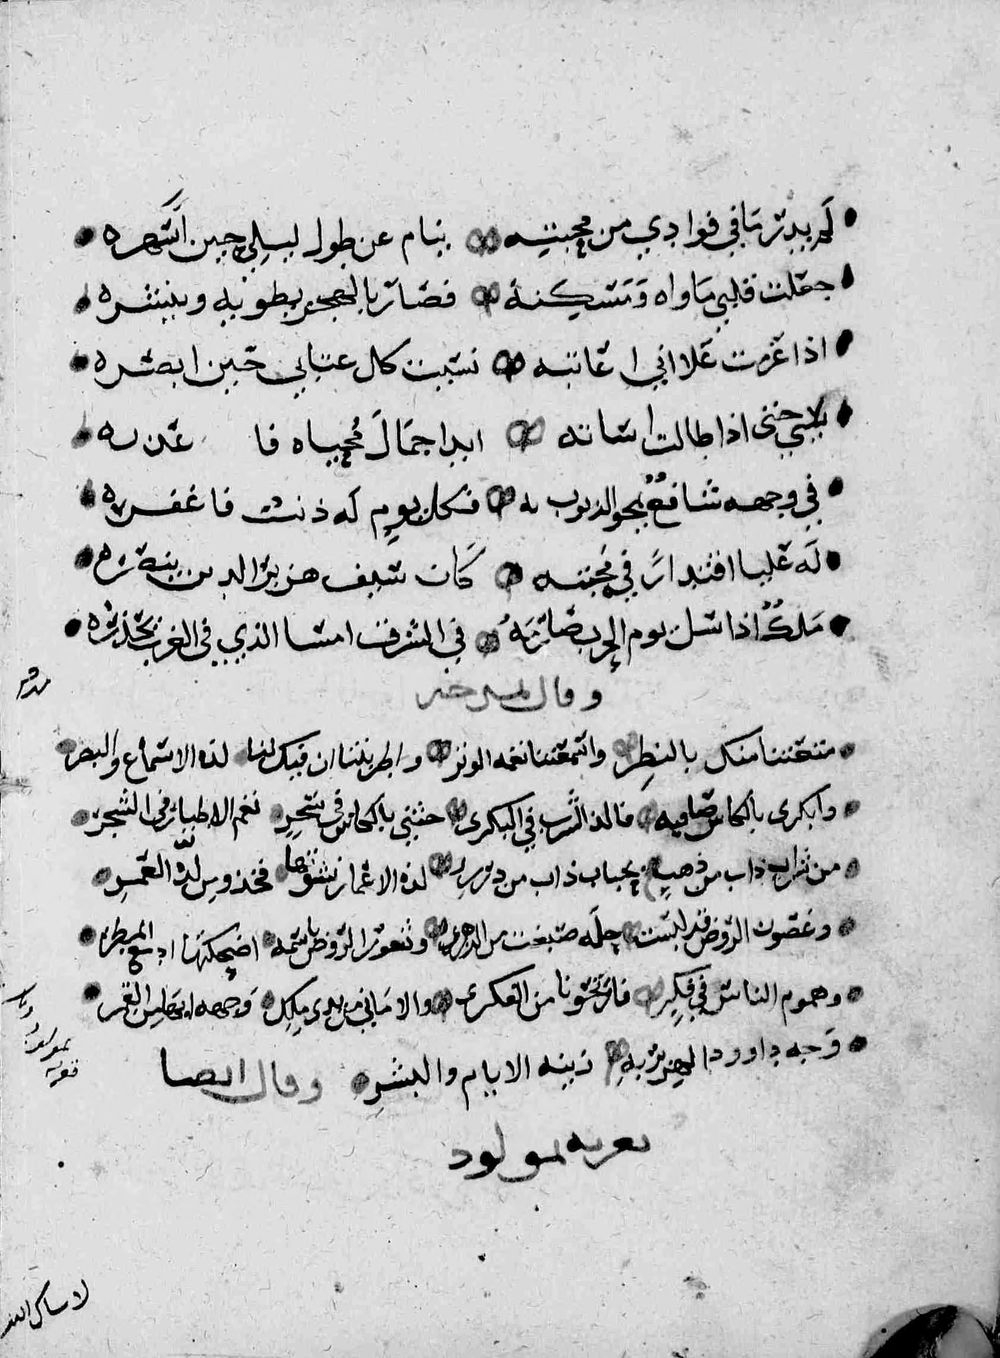 لم يدر ما في فوادي من محبته ينام عن طول ليلي حين اسهره
جعلت قلبي ماواه ومسكنه فصار بالهجر يطويه وينشره
اذا عزمت علا اني اعاتبه نسيت كل عتابي حين ابصره
اذا طالت اساته ابدا جمال محياه فا عذره
في وجهه شافع يمحو الذنوب به فكل يوم له ذنب فاغفره
له علينا اقتدار في محبته كان سيف هزبر الدين ينصره
ملك اذا سل يوم الحرب صارمه في الشرق امسا الذي في الغرب يحذره
وقال يمدحه
متعتنا منك بالنظر واسمعتنا نغمه الوتر واطربتنا ان فيك لنا لذه الاسماع والبصر
وابكري بالكاس صافيه فالذ الشرب في البكر حثني بالكاس في سحر نغم الاطيار في الشجر
من شراب ذاب من ذهب بحباب ذاب من درر لذه الاعمار نشوتها فخذوا من لذه العمر
وغصون الروض قد لبست حله صبغت من الزهر وثغور الروض باسمه اضحكتها ادمع المطر
وهموم الناس في فكر فاريحونا من الفكر والاماني من يدي ملك وجهه ابها من القمر
وجه داوود الهزبر به زينه الايام والبشر وقال ايضا
تعزيه بمولود